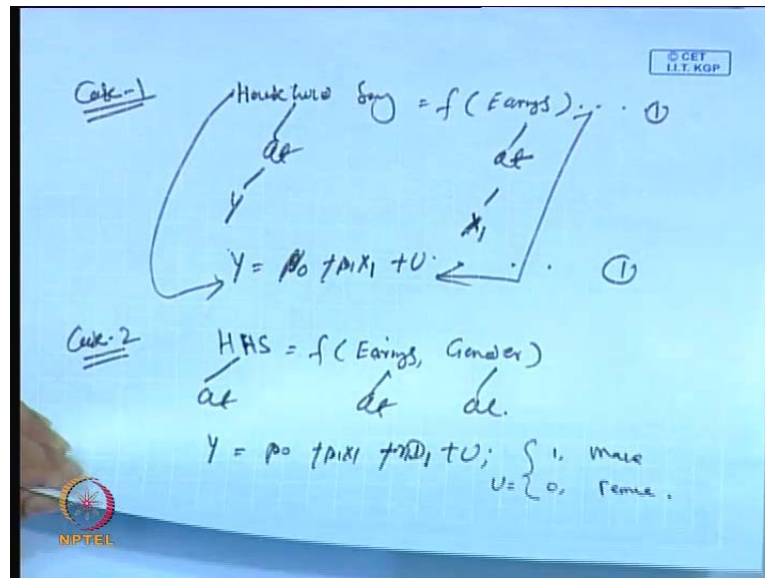 © CET
I.I.T. KGP
Case-1
Household Sav = f (Earngs) . . . ①
at at
Y X₁
Y = β0 + β1X1 + U . . . ①
Case-2
HHS = f (Earings, Gender)
at at al.
Y = β0 + β1X1 + D1 + U; { 1, Male
U = { 0, Female.
NPTEL